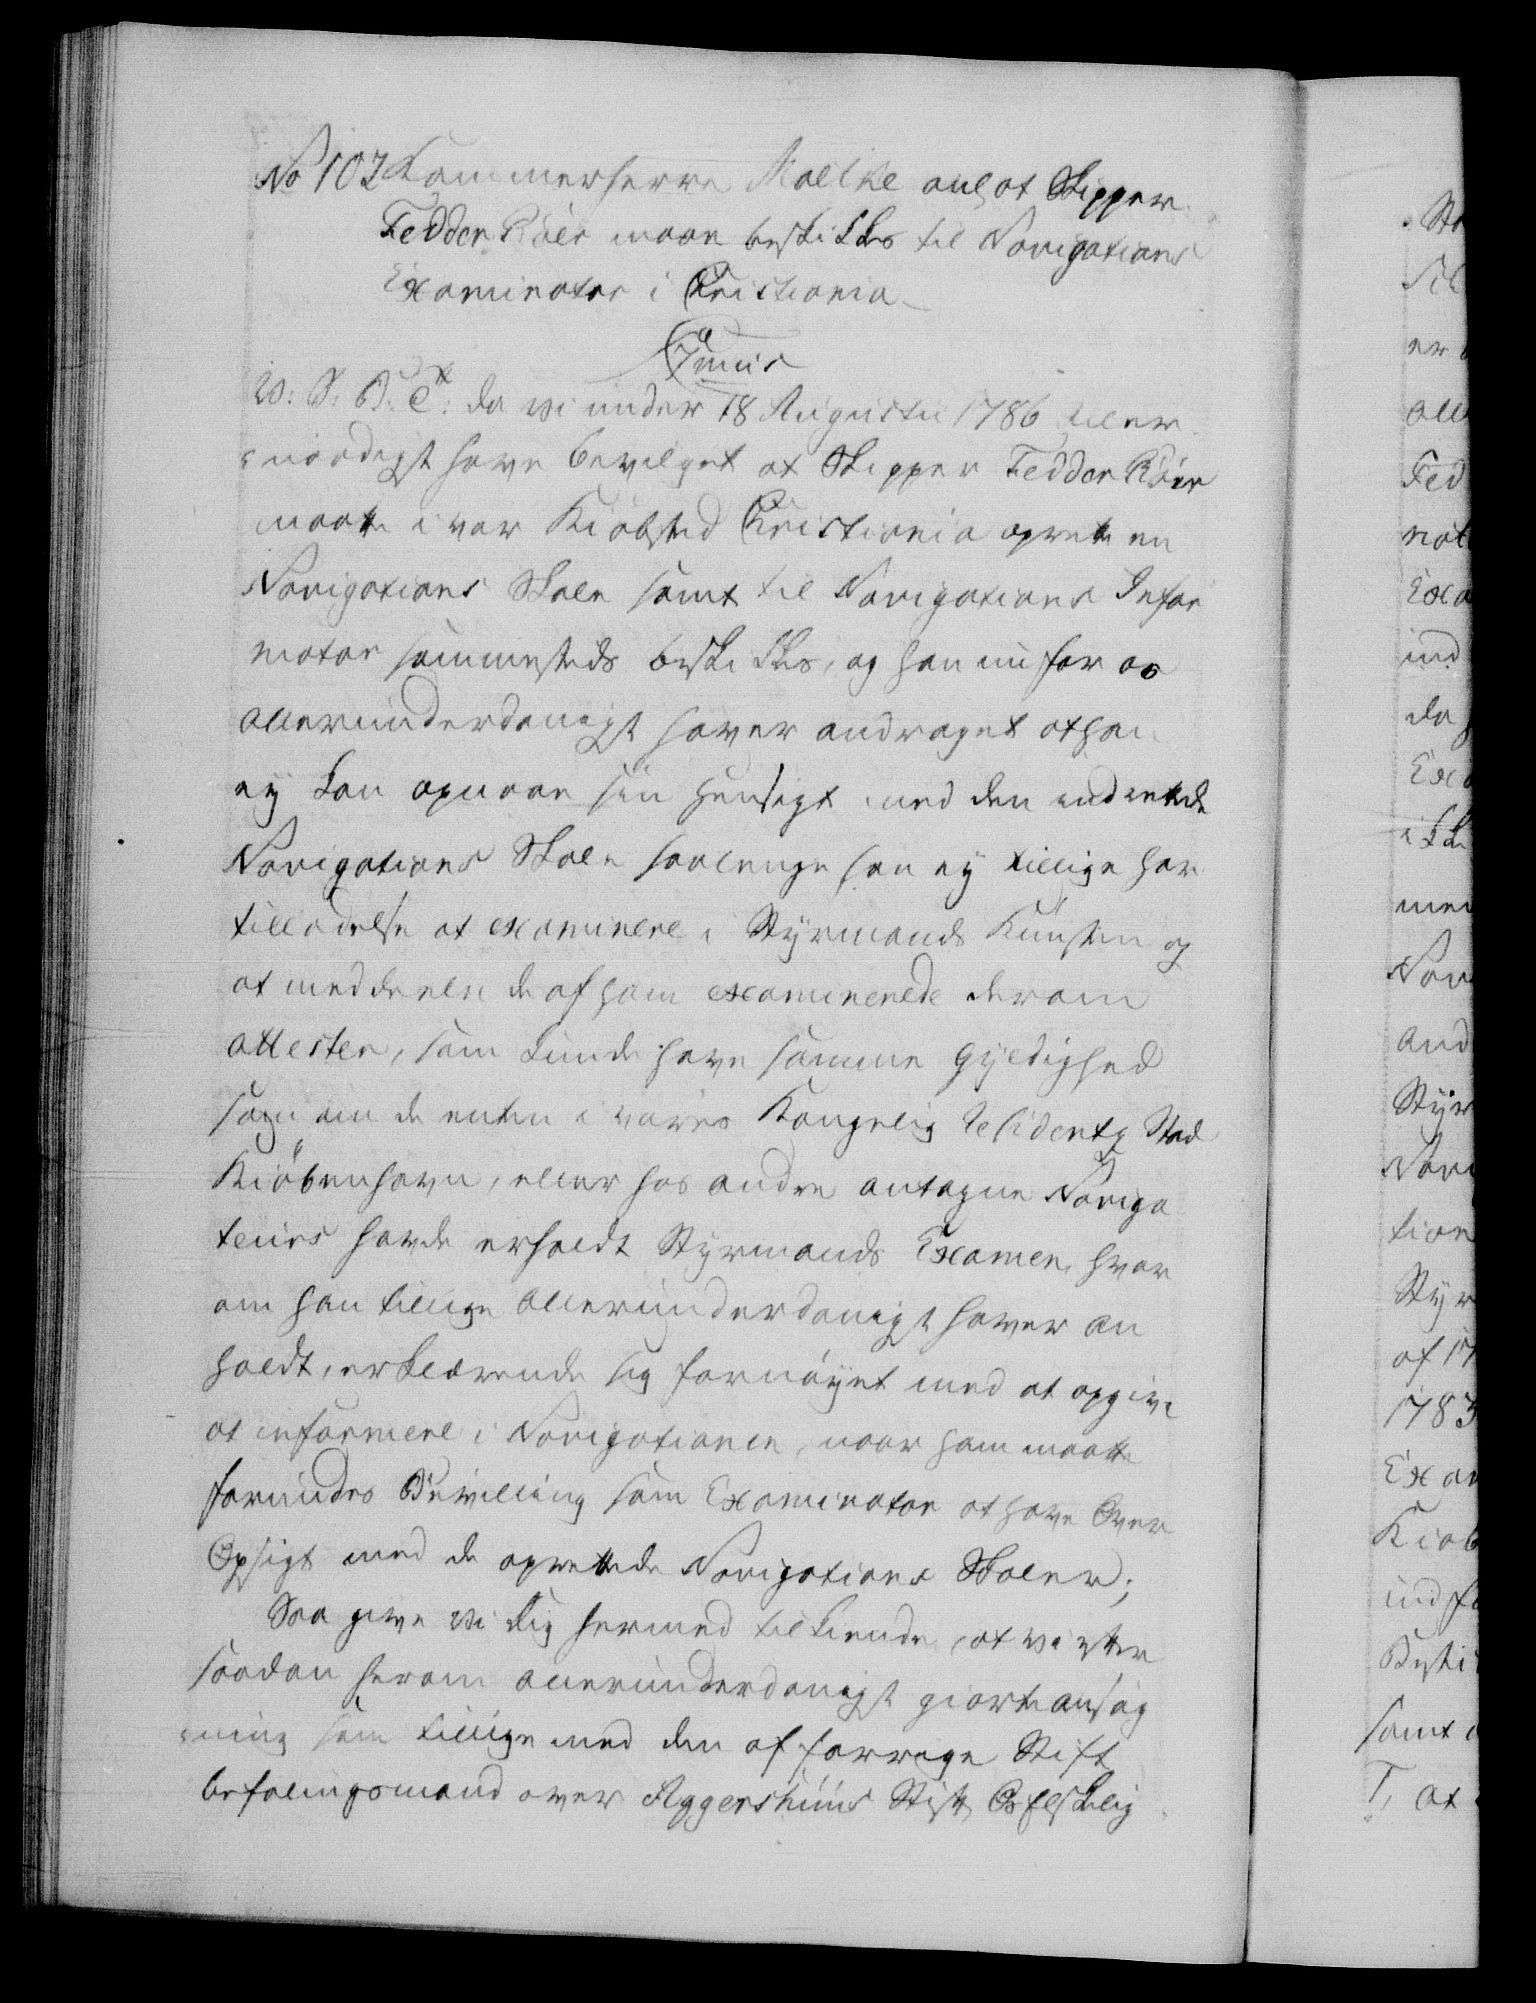 No 102 Kammerherre Moltke anl. at Skipper
Fedder Röer maae beskikkes til Navigations
Examinator i Christiania
V: G: B: T: da vi under 18 Augusti 1786 aller
naadigst have bevilget at Skipper Fedder Röer
maatte i vor Kiöbsted Christiania oprette en
Navigations Skole samt til Navigations Infor
mator sammesteds beskikkes, og han nu for os
allerunderdanigst haver andraget at han
ey kan opnaae sin Hensigt med den indrettede
Navigations Skole saalenge han ey tillige har
tilladelse at examinere i Styrmands Kunsten og
at meddeele de af ham examinerede derom
attester, som kunde have samme gyldighed
som om de enten i vores Kongelig Residentz Stad
Kiöbenhavn, eller hos andre antagne Naviga
teurs havde erholdt Styrmands Examen, hvor
om han tillige allerunderdanigst haver an
holdt, erklærende sig fornöyet med at opgive
at informere i Navigationen, naar ham maatte
forundes Bevilling som Examinator at have Over
Opsigt med de oprettede Navigations Skoler;
Saa give vi dig hermed tilkiende, at vi efter
saadan herom allerunderdanigst giorte ansög
ning som tillige med den af forrige Stift
befalingsmand over Aggershuus Stift, Os Elskelig